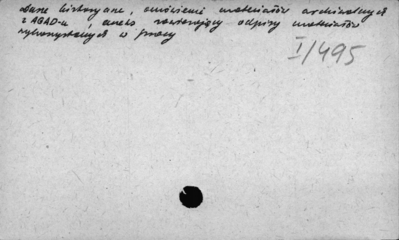 dane historyczne, omówienie materiałów archiwalnych
z AGAD-u, aneks zawierający odpisy materiałów
wykorzystanych w pracy
I/495